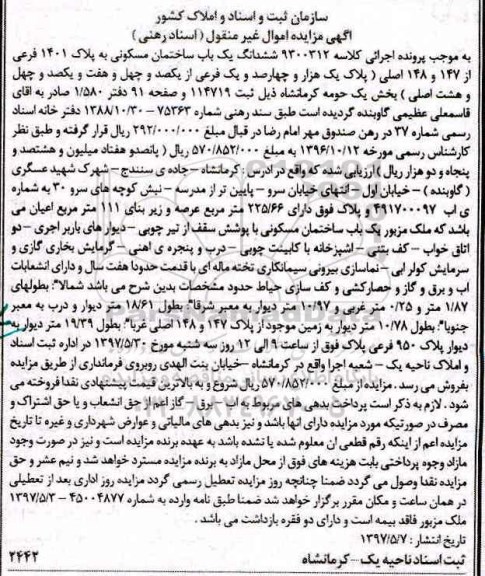 سازمان ثبت و اسناد و املاک کشور
آگهی مزایده اموال غیر منقول ( اسناد رهنی )
به موجب پرونده اجرائی کلاسه ۹۳۰۰۳۱۲ ششدانگ یک باب ساختمان مسکونی به پلاک ۱۴۰۱ فرعی
از ۱۴۷ و ۱۴۸ اصلی ( پلاک یک هزار و چهارصد و یک فرعی از یکصد و چهل و هفت و یکصد و چهل
و هشت اصلی ) بخش یک حومه کرمانشاه ذیل ثبت ۱۱۴۷۱۹ و صفحه ۹۱ دفتر ۱/۵۸۰ صادر به اقای
قاسمعلی عظیمی گاوبنده گردیده است طبق سند رهنی شماره ۷۵۳۶۳ – ۱۳۸۸/۱۰/۳۰ دفتر خانه اسناد
رسمی شماره ۳۷ در رهن صندوق مهر امام رضا در قبال مبلغ ۲۹۲/۰۰۰/۰۰۰ ریال قرار گرفته و طبق نظر
کارشناس رسمی مورخه ۱۳۹۶/۱۰/۱۲ به مبلغ ۵۷۰/۸۵۲/۰۰۰ ریال ( پانصدو هفتاد میلیون و هشتصد و
پنجاه و دو هزار ریال ) ارزیابی شده که واقع در ادرس : کرمانشاه – جاده ی سنندج – شهرک شهید عسگری
( گاوبنده ) – خیابان اول – انتهای خیابان سرو – پایین تر از مدرسه – نبش کوچه های سرو ۳۰ به شماره
ی اب ۴۹۱۷۰۰۰۹۷ و پلاک فوق دارای ۲۲۵/۶۶ متر مربع عرصه و زیر بنای ۱۱۱ متر مربع اعیان می
باشد که ملک مزبور یک باب ساختمان مسکونی با پوشش سقف از تیر چوبی – دیوار های باربر اجری – دو
اتاق خواب – کف بتنی – اشپزخانه با کابینت چوبی – درب و پنجره ی اهنی – گرمایش بخاری گازی و
سرمایش کولر ابی – نماسازی بیرونی سیمانکاری تخته ماله ای با قدمت حدودا هفت سال و دارای انشعابات
اب و برق و گاز و حصارکشی و کف سازی حیاط حدود مشخصات بدین شرح می باشد شمالا: بطولهای
۱/۸۷ متر و ۰/۲۵ متر غربی و ۱۰/۹۷ متر دیوار به معبر شرقا: بطول ۱۸/۶۱ متر دیوار و درب به معبر
جنوبا: بطول ۱۰/۷۸ متر دیوار به زمین موجود از پلاک ۱۴۷ و ۱۴۸ اصلی غربا: بطول ۱۹/۳۹ متر دیوار به
دیوار پلاک ۹۵۰ فرعی پلاک فوق از ساعت ۹ الی ۱۲ روز سه شنبه مورخ ۱۳۹۷/۵/۳۰ در اداره ثبت اسناد
و املاک ناحیه یک – شعبه اجرا واقع در کرمانشاه – خیابان بنت الهدی روبروی فرمانداری از طریق مزایده
بفروش می رسد . مزایده از مبلغ ۵۷۰/۸۵۲/۰۰۰ ریال شروع و به بالاترین قیمت پیشنهادی نقدا فروخته می
شود . لازم به ذکر است پرداخت بدهی های مربوط به اب – برق – گاز اعم از حق انشعاب و یا حق اشتراک و
مصرف در صورتیکه مورد مزایده دارای انها باشد و نیز بدهی های مالیاتی و عوارض شهرداری و غیره تا تاریخ
مزایده اعم از اینکه رقم قطعی ان معلوم شده یا نشده باشد به عهده برنده مزایده است و نیز در صورت وجود
مازاد وجوه پرداختی بابت هزینه های فوق از محل مازاد به برنده مزایده مسترد خواهد شد و نیم عشر و حق
مزایده نقدا وصول می گردد ضمنا چنانچه روز مزایده تعطیل رسمی گردد مزایده روز اداری بعد از تعطیلی
در همان ساعت و مکان مقرر برگزار خواهد شد ضمنا طبق نامه وارده به شماره ۴۵۰۰۴۸۷۷ – ۱۳۹۷/۵/۳
ملک مزبور فاقد بیمه است و دارای دو فقره بازداشت می باشد .
تاریخ انتشار : ۱۳۹۷/۵/۷
ثبت اسناد ناحیه یک – کرمانشاه ۲۴۴۲